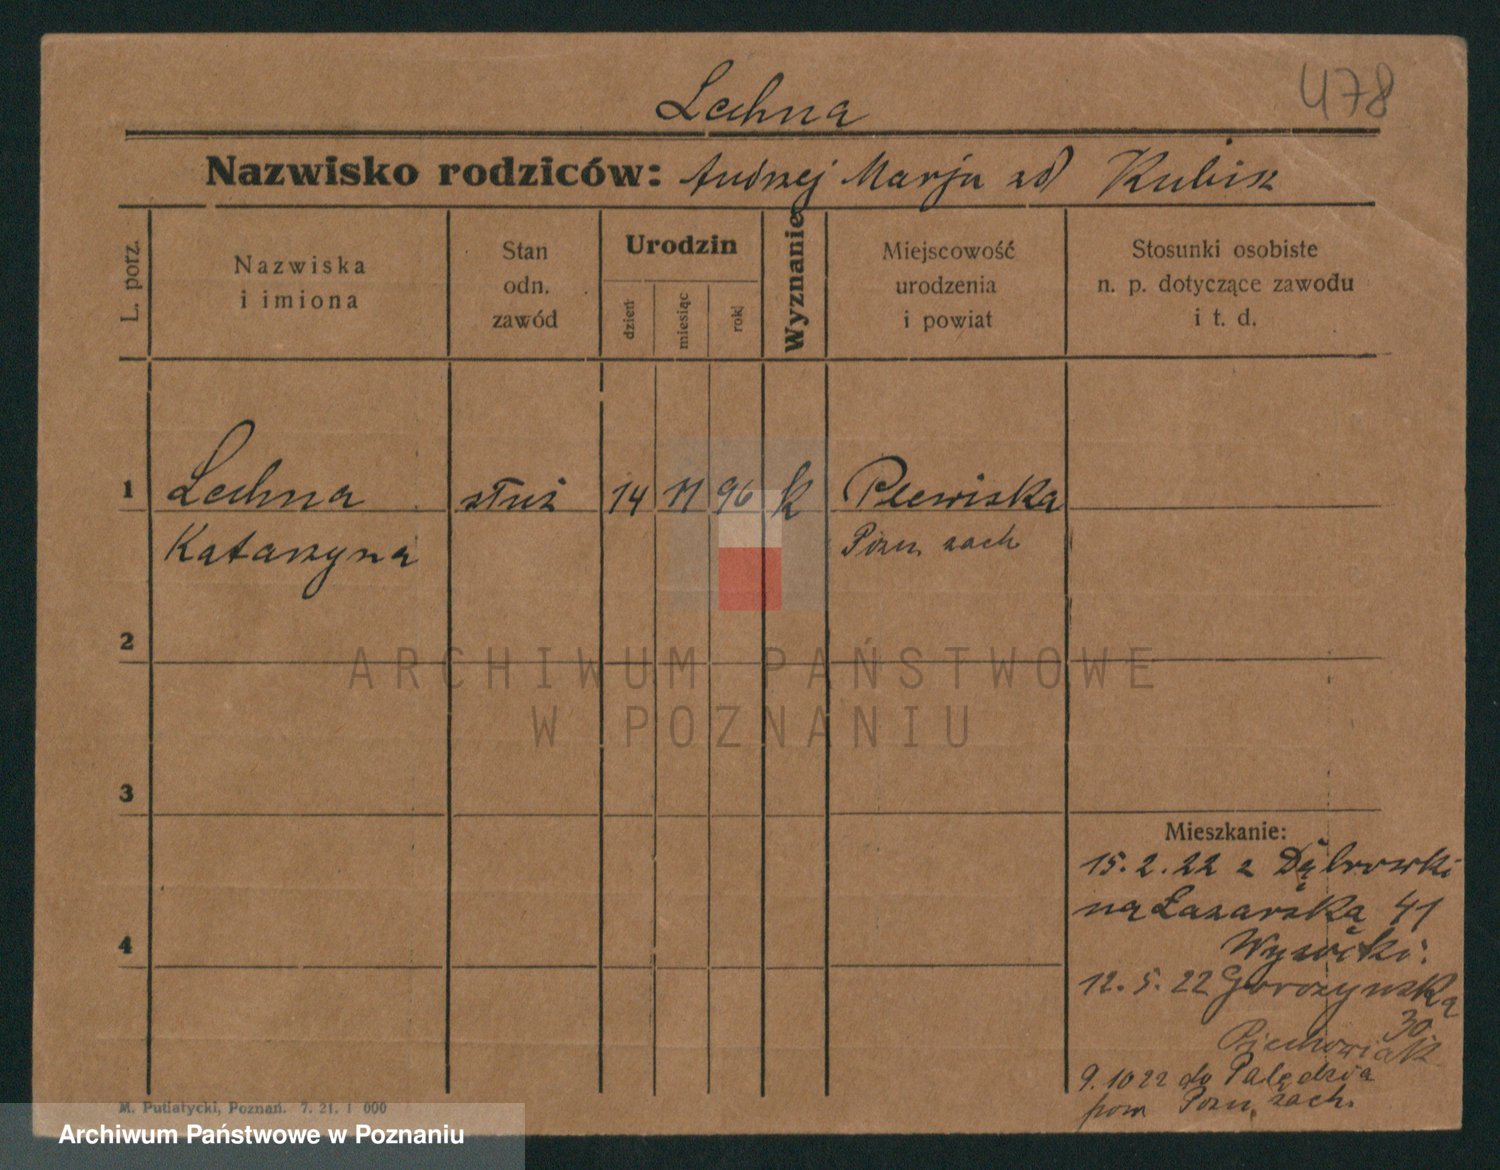 478
Lechna
Nazwisko rodziców: Andrzej Marja zd Kubisz
L. porz.
Nazwiska
i imiona
Stan
odn.
zawód
Urodzin
dzień
miesiąc
rok
Wyznanie
Miejscowość
urodzenia
i powiat
Stosunki osobiste
n. p. dotyczące zawodu
i t. d.
1 Lechna służ 14 11 96 k Plewiska
Katarzyna Pozn. zach
2
ARCHIWUM PAŃSTWOWE
W POZNANIU
3
Mieszkanie:
15.2.22 z Dąbrowki
na Łazarska 41
4
Wysocki.
12.5.22 Gorczynska
30.
Piechowiak
9.10 22 do Palędzia
pow Pozn. zach.
M. Putiatycki, Poznań. 7. 21. 1 000
Archiwum Państwowe w Poznaniu